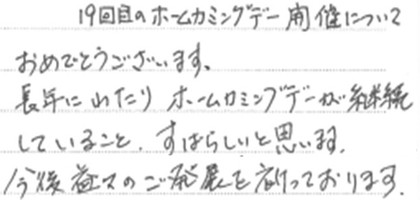 19回目のホームカミングデー開催について
おめでとうございます。
長年にわたりホームカミングデーが継続
していること、すばらしいと思います。
今後益々のご発展を祈っております。